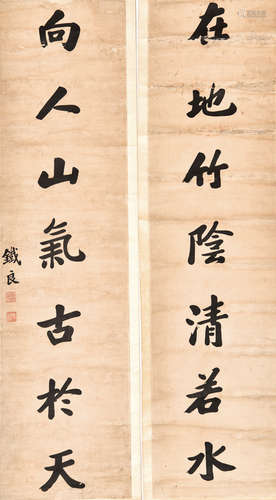 在地竹陰清若水
向人山氣古於天
鐵良